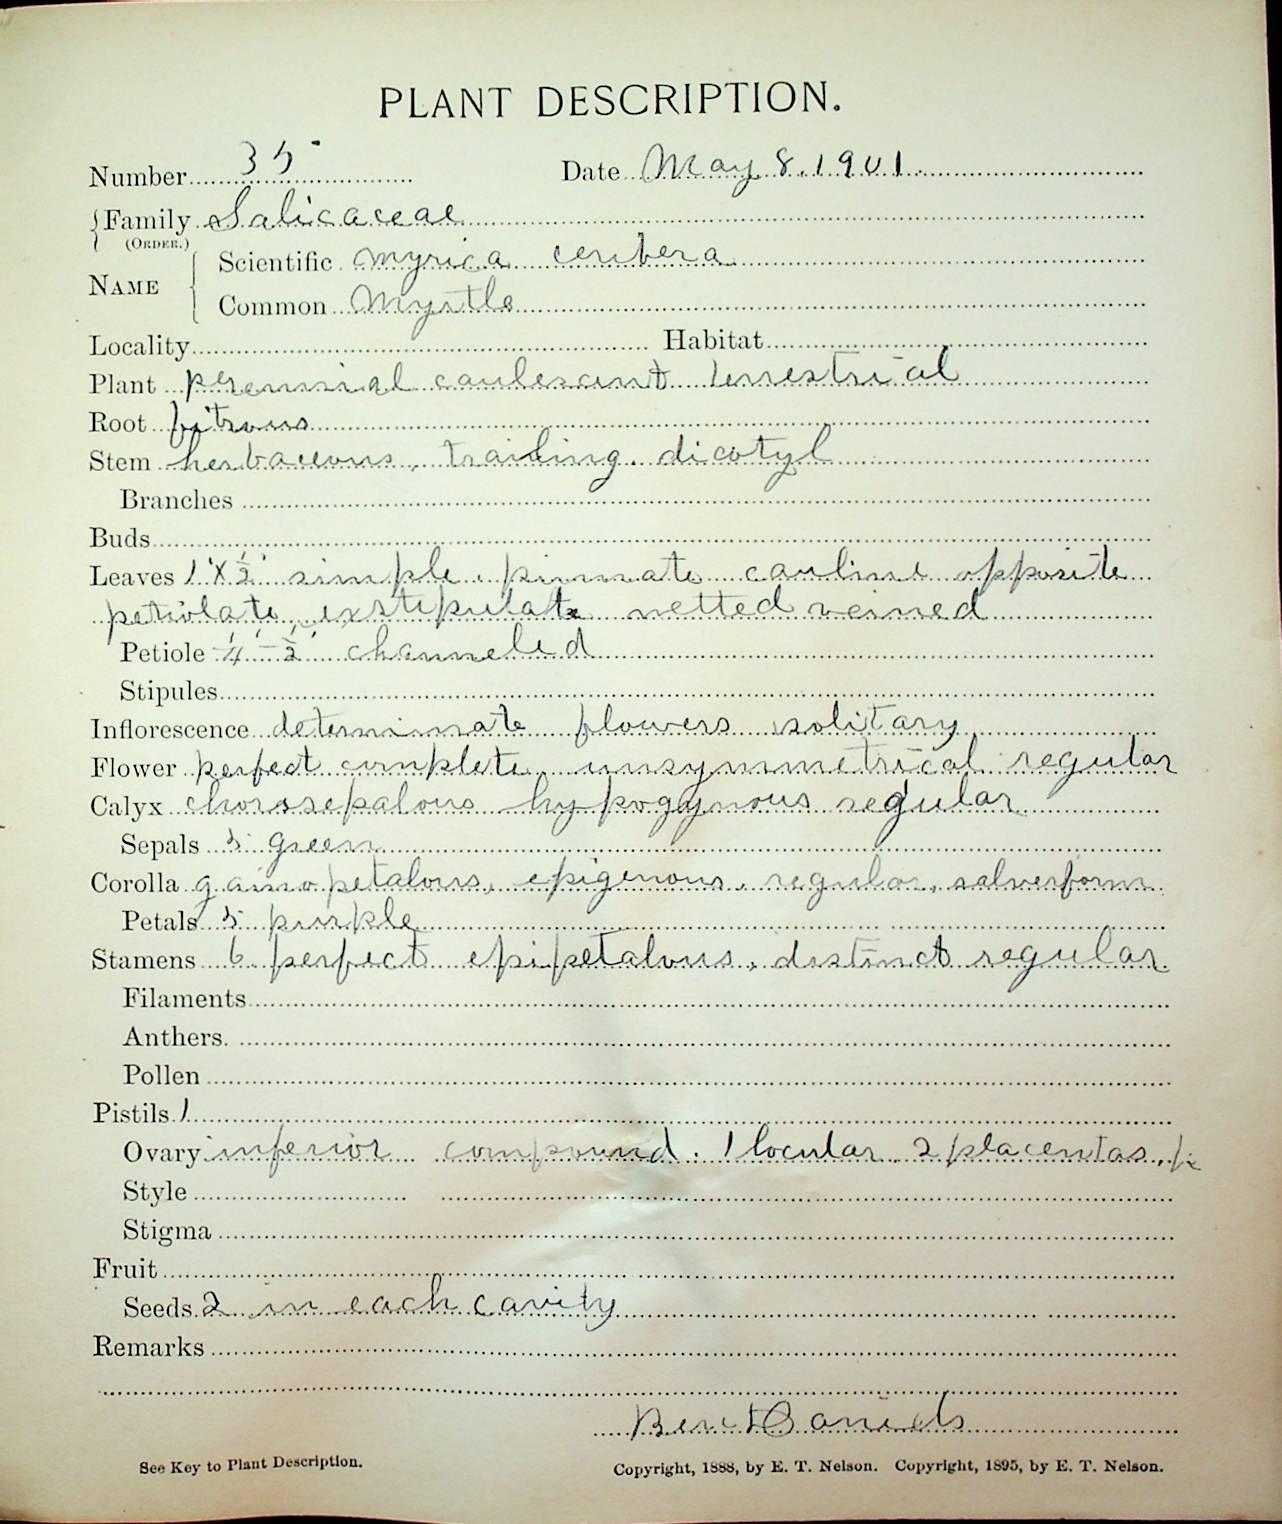 PLANT DESCRIPTION.
Number 35 Date May 8, 1901.
Family Salicaceae
(ORDER.)
Scientific Myrica ceribera
NAME
Common Myrtle
Locality Habitat
Plant perennial caulescent terrestrial
Root fitrous
Stem herbaceous, trailing. dicotyl
Branches
Buds
Leaves 1'x 1/2' simple, pinnate cauline opposite
petiolate, exstipulate netted veined
Petiole 1/4'-1/2' channeled
Stipules
Inflorescence determinate flowers solitary
Flower perfect complete, unsymmetrical regular
Calyx chorosepalous hypogynous regular
Sepals 5 green
Corolla gamopetalous, epigenous, regular, salverform.
Petals 5 purple
Stamens 6 perfect epipetalous, distinct regular.
Filaments
Anthers.
Pollen
Pistils 1
Ovary inferior compound. 1 locular 2 placentas,
Style
Stigma
Fruit
Seeds 2 in each cavity
Remarks
Daniels
See Key to Plant Description. Copyright, 1888, by E. T. Nelson. Copyright, 1895, by E. T. Nelson.